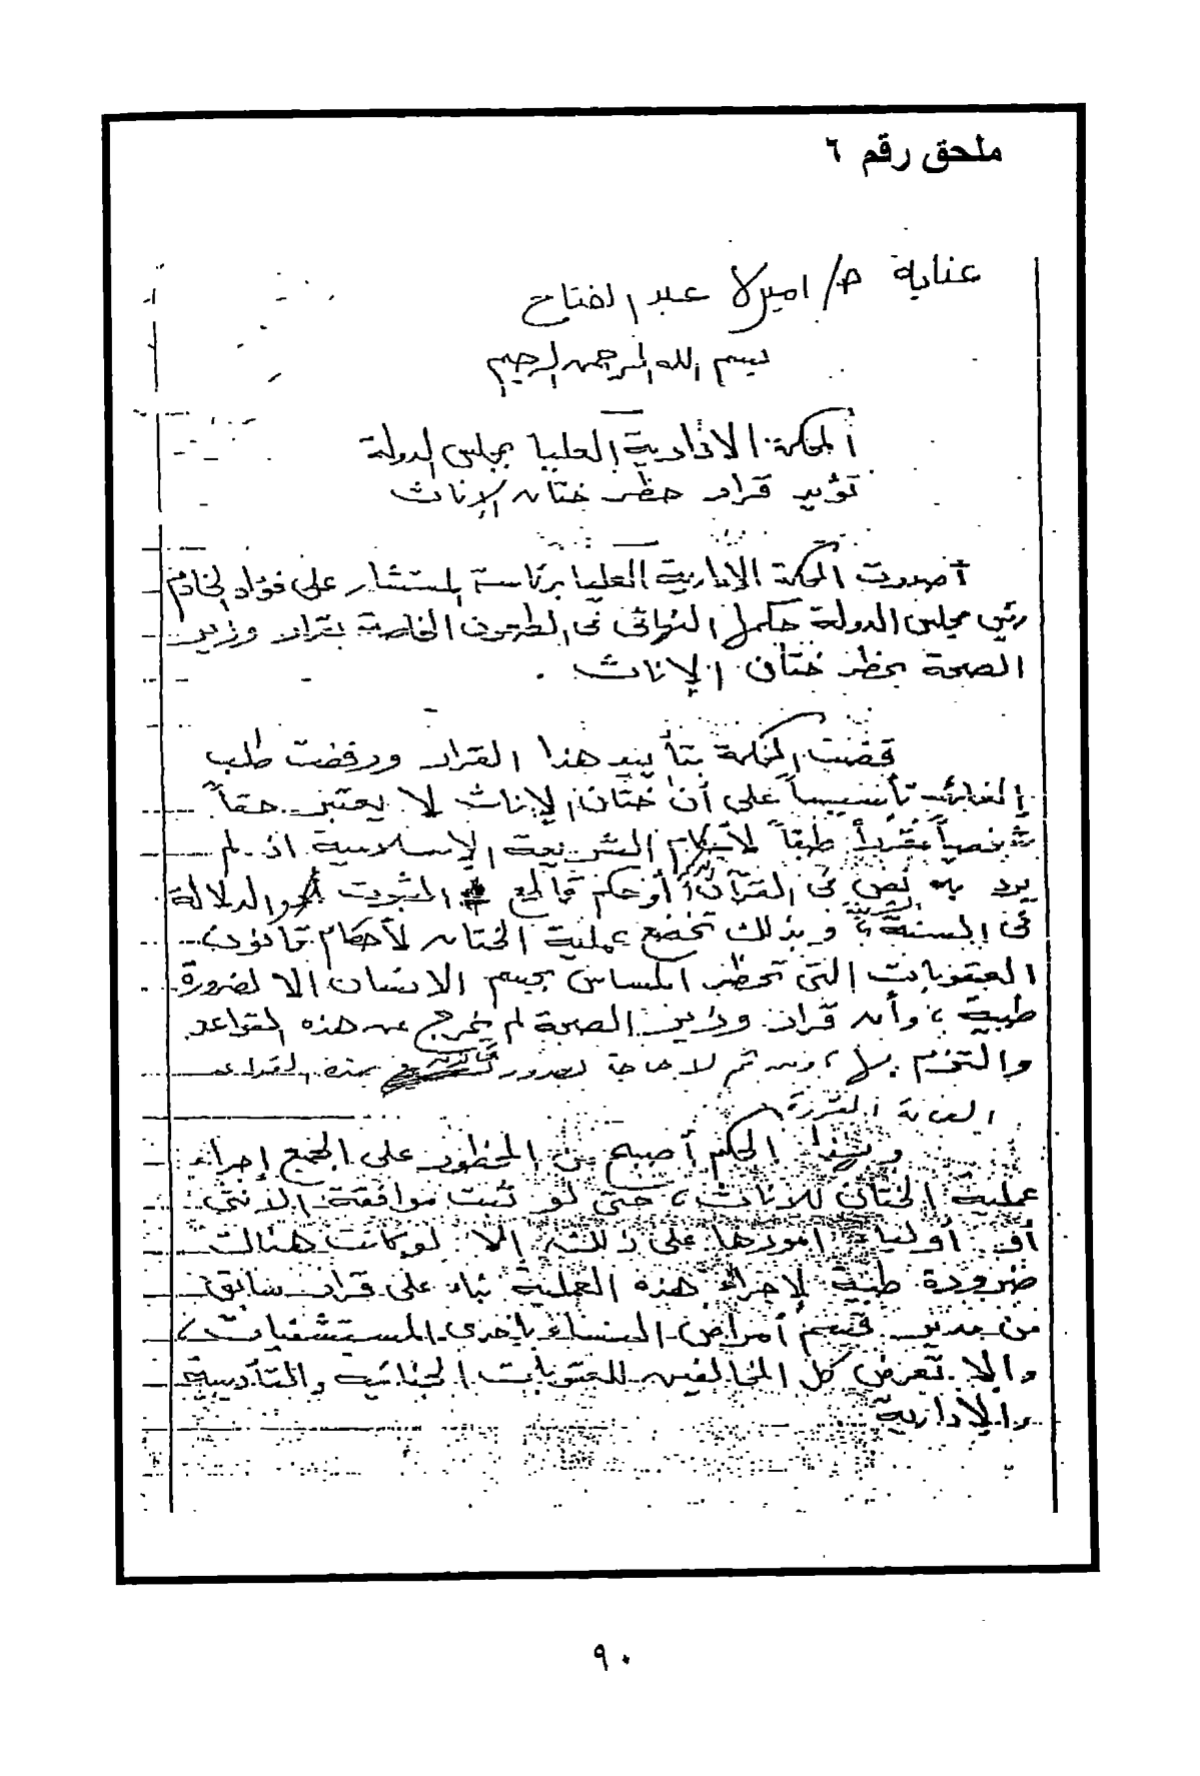 ملحق رقم ٦
عناية / اميرة عبد الفتاح
بسم الله الرحمن الرحيم
المحكمة الادارية العليا بمجلس الدولة
تؤيد قرار حظر ختان الإناث
أصدرت المحكمة الإدارية العليا برئاسة المستشار على فؤاد الخادم
رئيس مجلس الدولة حكمها النهائى فى الطعون الخاصة بقرار وزير
الصحة بحظر ختان الإناث .
قضت المحكمة بتأييد هذا القرار ورفضت طلب
إلغائه تأسيساً على أن ختان الإناث لا يعتبر حقاً
شخصياً مقرراً طبقاً لأحكام الشريعة الإسلامية اذ لم
يرد به نص فى القرآن أو حكم قاطع الثبوت والدلالة
فى السنة ، وبذلك تخضع عملية الختان لأحكام قانون
العقوبات التى تحظر المساس بجسم الانسان الا لضرورة
طبية ، وأن قرار وزير الصحة لم يخرج عن هذه القواعد
والتزم بها ، ومن ثم لا حاجة لصدور قانون بهذه القواعد
العامة المقررة
وبهذا الحكم أصبح من المحظور على الجميع إجراء
عملية الختان للاناث ، حتى لو ثبت موافقة الانثى
أو أولياء أمورها على ذلك ، إلا لو كانت هنالك
ضرورة طبية لإجراء هذه العملية بناء على قرار سابق
من مدير قسم أمراض النساء بإحدى المستشفيات ،
والا تعرض كل المخالفين للعقوبات الجنائية والتأديبية
والإدارية
٩٠